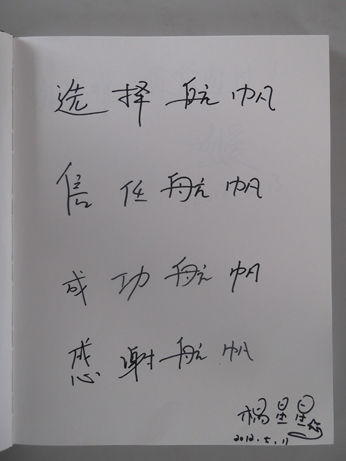 选择航帆
信任航帆
成功航帆
感谢航帆
杨星星
2012.5.11